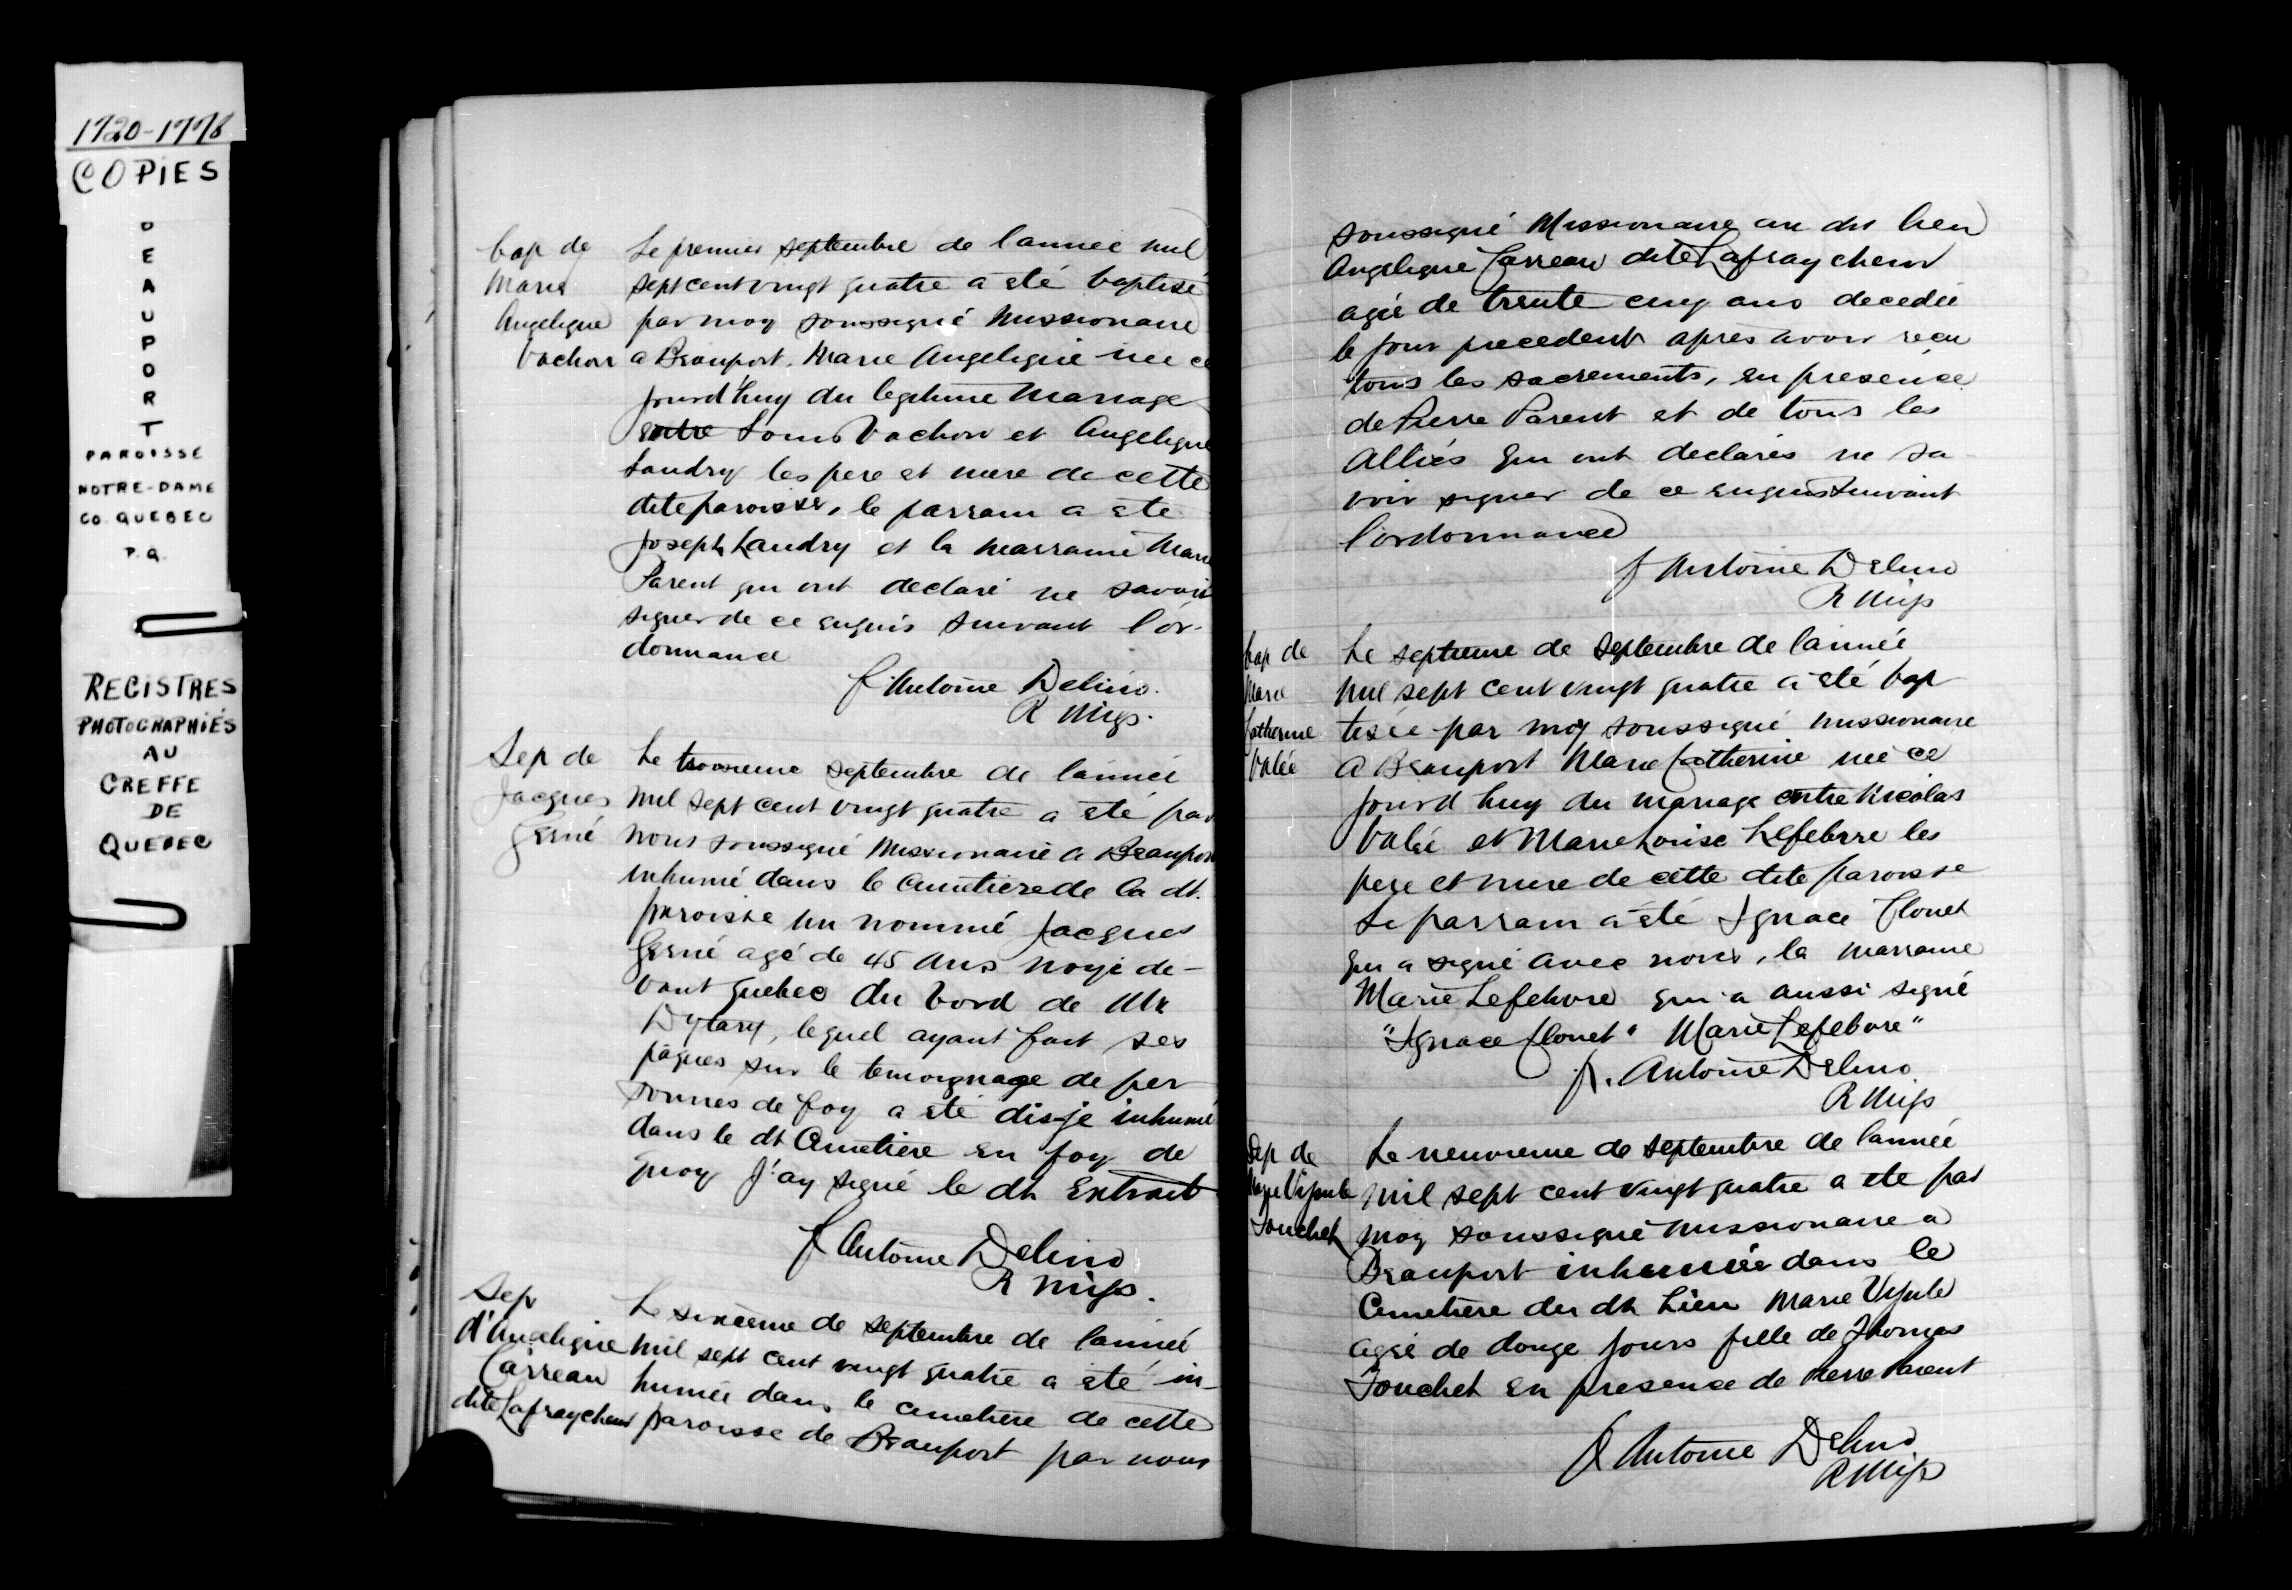 1720-1778
COPIES
BEAUPORT
PAROISSE
NOTRE-DAME
CO. QUEBEC
P.Q.
REGISTRES
PHOTOGRAPHIÉS
AU
GREFFE
DE
QUEBEC
bap de
Marie
Angelique
Vachon
Le premier septembre de lannee mil
sept cent vingt quatre a été baptisé
par moy soussigné Missionaire
a Beauport, Marie Angelique née ce
jourd'huy du legitime Mariage
entre Louis Vachon et Angelique
Landry les pere et mere de cette
dite paroisse, le parrain a ete
Joseph Landry et la marraine Marie
Parent qui ont declaré ne savoir
signer de ce enquis suivant l'or-
donnance
f. Antoine Delino.
R Miss.
Sep de
Jacques
Gesné
Le troisieme septembre de lannée
mil sept cent vingt quatre a été par
nous soussigné Missionaire a Beauport
inhumé dans le Cimetiere de la dt.
paroisse un nommé Jacques
Gesné agé de 45 Ans noyé de-
vant Quebec du bord de Mr
Dylary, lequel ayant fait ses
pâques sur le temoignage de per
sonnes de foy a été dis-je inhumé
dans le dt Cimetière en foy de
quoy J'ay signé le dt Extrait
f Antoine Delino
R Miss.
Sep
d'Angelique
Carreau
dite Lafraycheur
Le sixcème de septembre de lannée
mil sept cent vingt quatre a été in-
humée dans le cimetière de cette
paroisse de Beauport par nous
soussigné Missionaire au dit lieu
Angelique Carreau dite Lafraycheur
agée de trente cinq ans decedée
le jour precedent apres avoir recu
tous les sacrements, en presence
de Pierre Parent et de tous les
Alliés qui ont declarés ne sa-
voir signer de ce enquis suivant
l'ordonnance
f Antoine Delino
R Miss
bap de
Marie
Catherine
Valée
Le septieme de septembre de lannée
mil sept cent vingt quatre a été bap
tisée par moy soussigné missionaire
a Beauport Marie Catherine née ce
jourd huy du mariage entre Nicolas
Valée et Marie Louise Lefebvre les
pere et mere de cette dite paroisse
Le parrain a été Ignace Clouet
qui a signé avec nous, la marraine
Marie Lefebvre qui a aussi signé
"Ignace Clouet" Marie Lefebvre"
f. Antoine Delino
R Miss
Sep de
Marie Ursule
Touchet
Le neuvieme de septembre de lannée
mil sept cent vingt quatre a ete par
moy soussigné missionaire a
Beauport inhumée dans le
Cimetière du dt Lieu Marie Ursule
agée de douze jours fille de Thomas
Touchet en presence de Pierre Parent
f Antoine Delino
R Miss